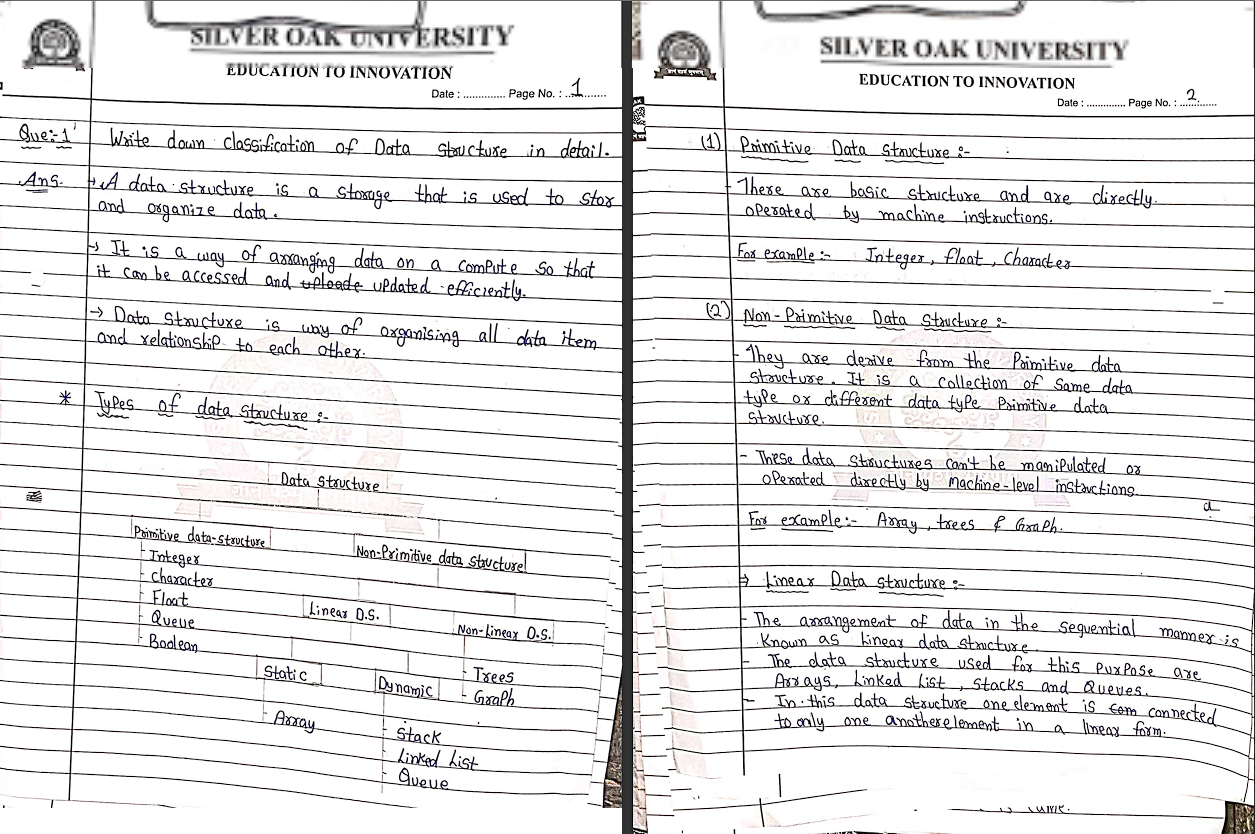 SILVER OAK UNIVERSITY
EDUCATION TO INNOVATION
Date : .............. Page No. : ..1........
Que:-1 Write down classification of Data Structure in detail.
Ans. → A data structure is a storage that is used to stor
and organize data.
→ It is a way of arranging data on a compute so that
it can be accessed and uploade updated efficiently.
→ Data Structure is way of organising all data item
and relationship to each other.
* Types of data Structure :-
Data Structure
Primitive data-structure
Non-Primitive data structure
- Integer
- Character
- Float
- Queue
- Boolean
Linear D.S.
Non-Linear D.S.
Static
Dynamic
- Trees
- Graph
- Array
- Stack
- Linked List
- Queue
SILVER OAK UNIVERSITY
EDUCATION TO INNOVATION
Date : .............. Page No. : ..2........
(1) Primitive Data Structure :-
- There are basic structure and are directly
operated by machine instructions.
For example :- Integer, float, Character
(2) Non-Primitive Data Structure :-
- They are derive from the Primitive data
structure. It is a collection of same data
type or different data type Primitive data
structure.
- These data structures can't be manipulated or
operated directly by Machine-level instructions.
For example:- Array, trees & Graph.
→ Linear Data structure :-
- The arrangement of data in the sequential manner is
known as linear data structure.
- The data structure used for this purpose are
Arrays, Linked List, Stacks and Queues.
- In this data structure one element is com connected
to only one another element in a linear form.